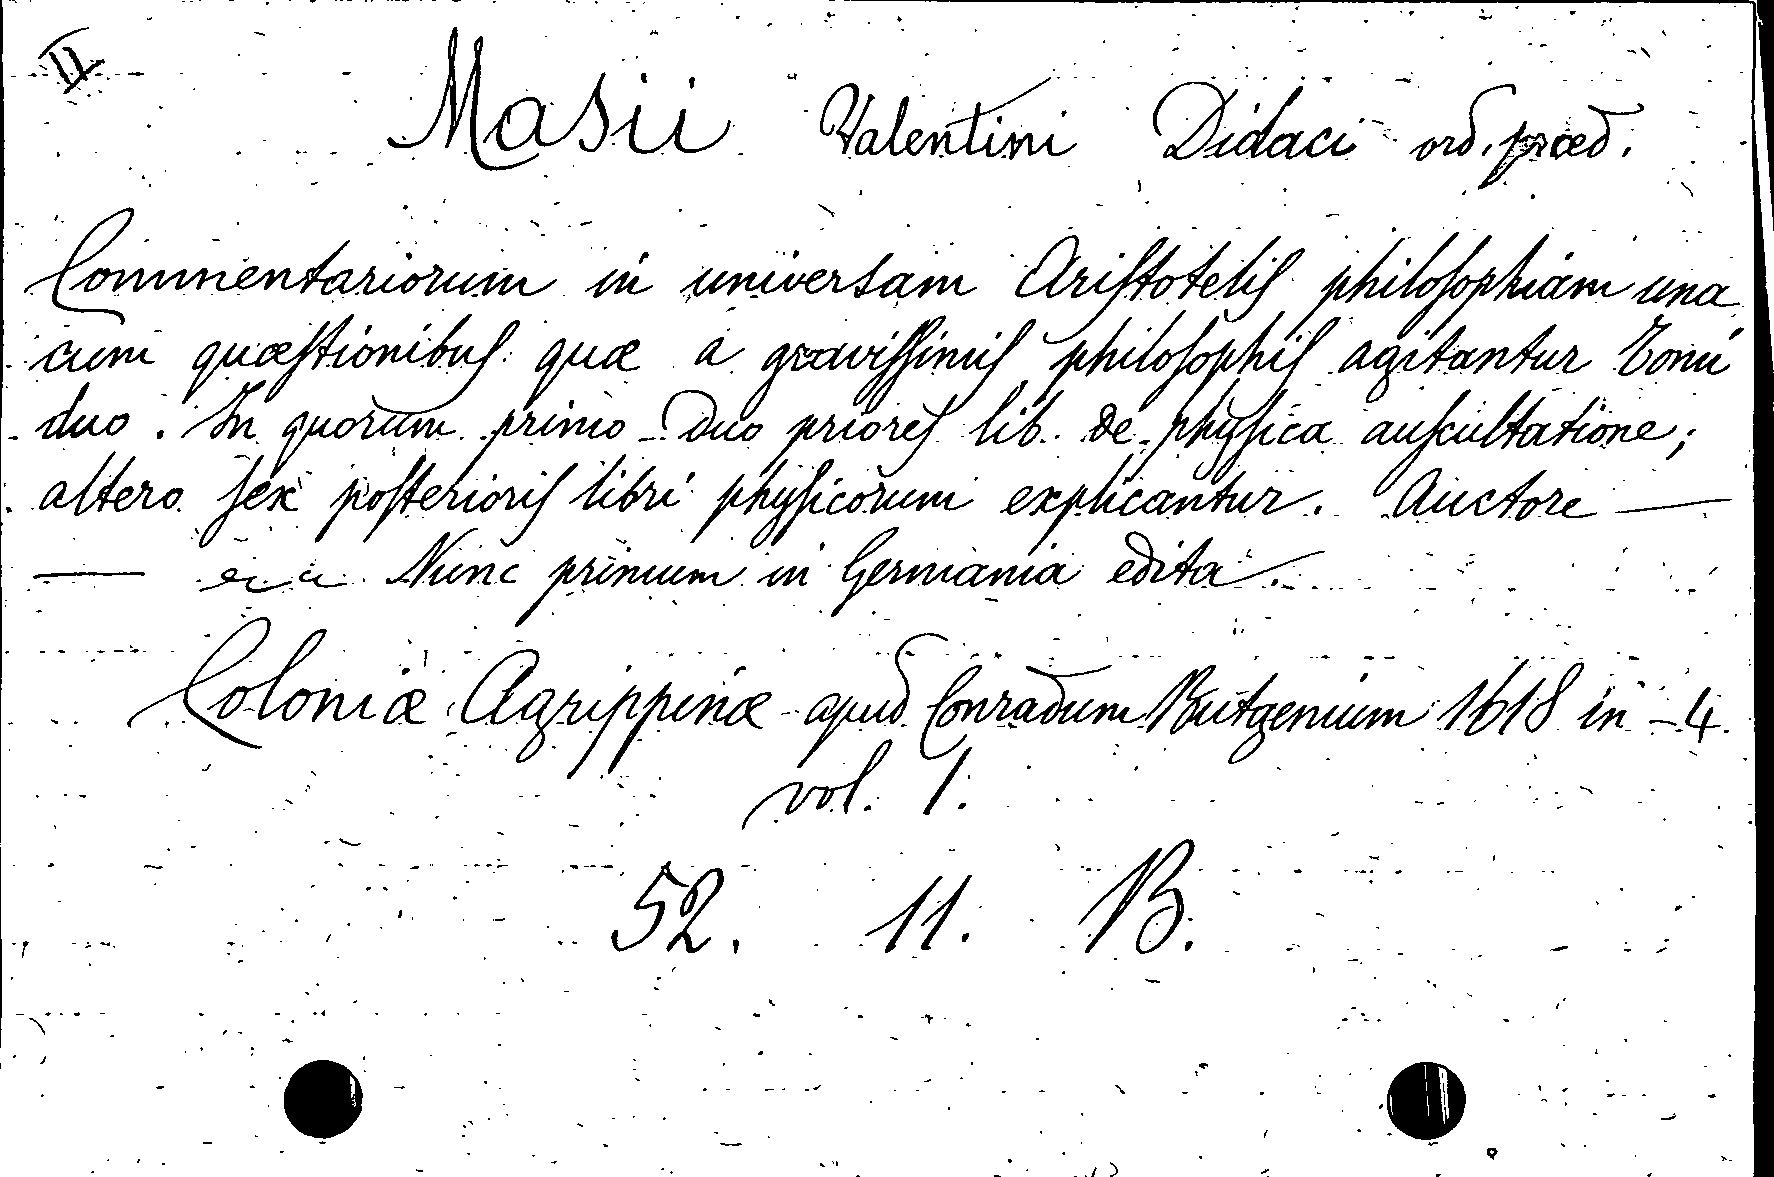 II
Masii Valentini Didaci ord. præd.
Commentariorum in universam Ariſtoteliſ philoſophiam una
cum quæſtionibuſ quæ a graviſſimiſ philoſophiſ agitantur Tomi
duo. In quorum primo duo prioreſ lib. de phyſica auſcultatione;
altero ſex poſterioriſ libri phyſicorum explicantur. Auctore —
— Nunc primum in Germania edita.
Coloniæ Agrippinæ apud Conradum Butgenium 1618 in-4
vol. 1.
52. 11. B.